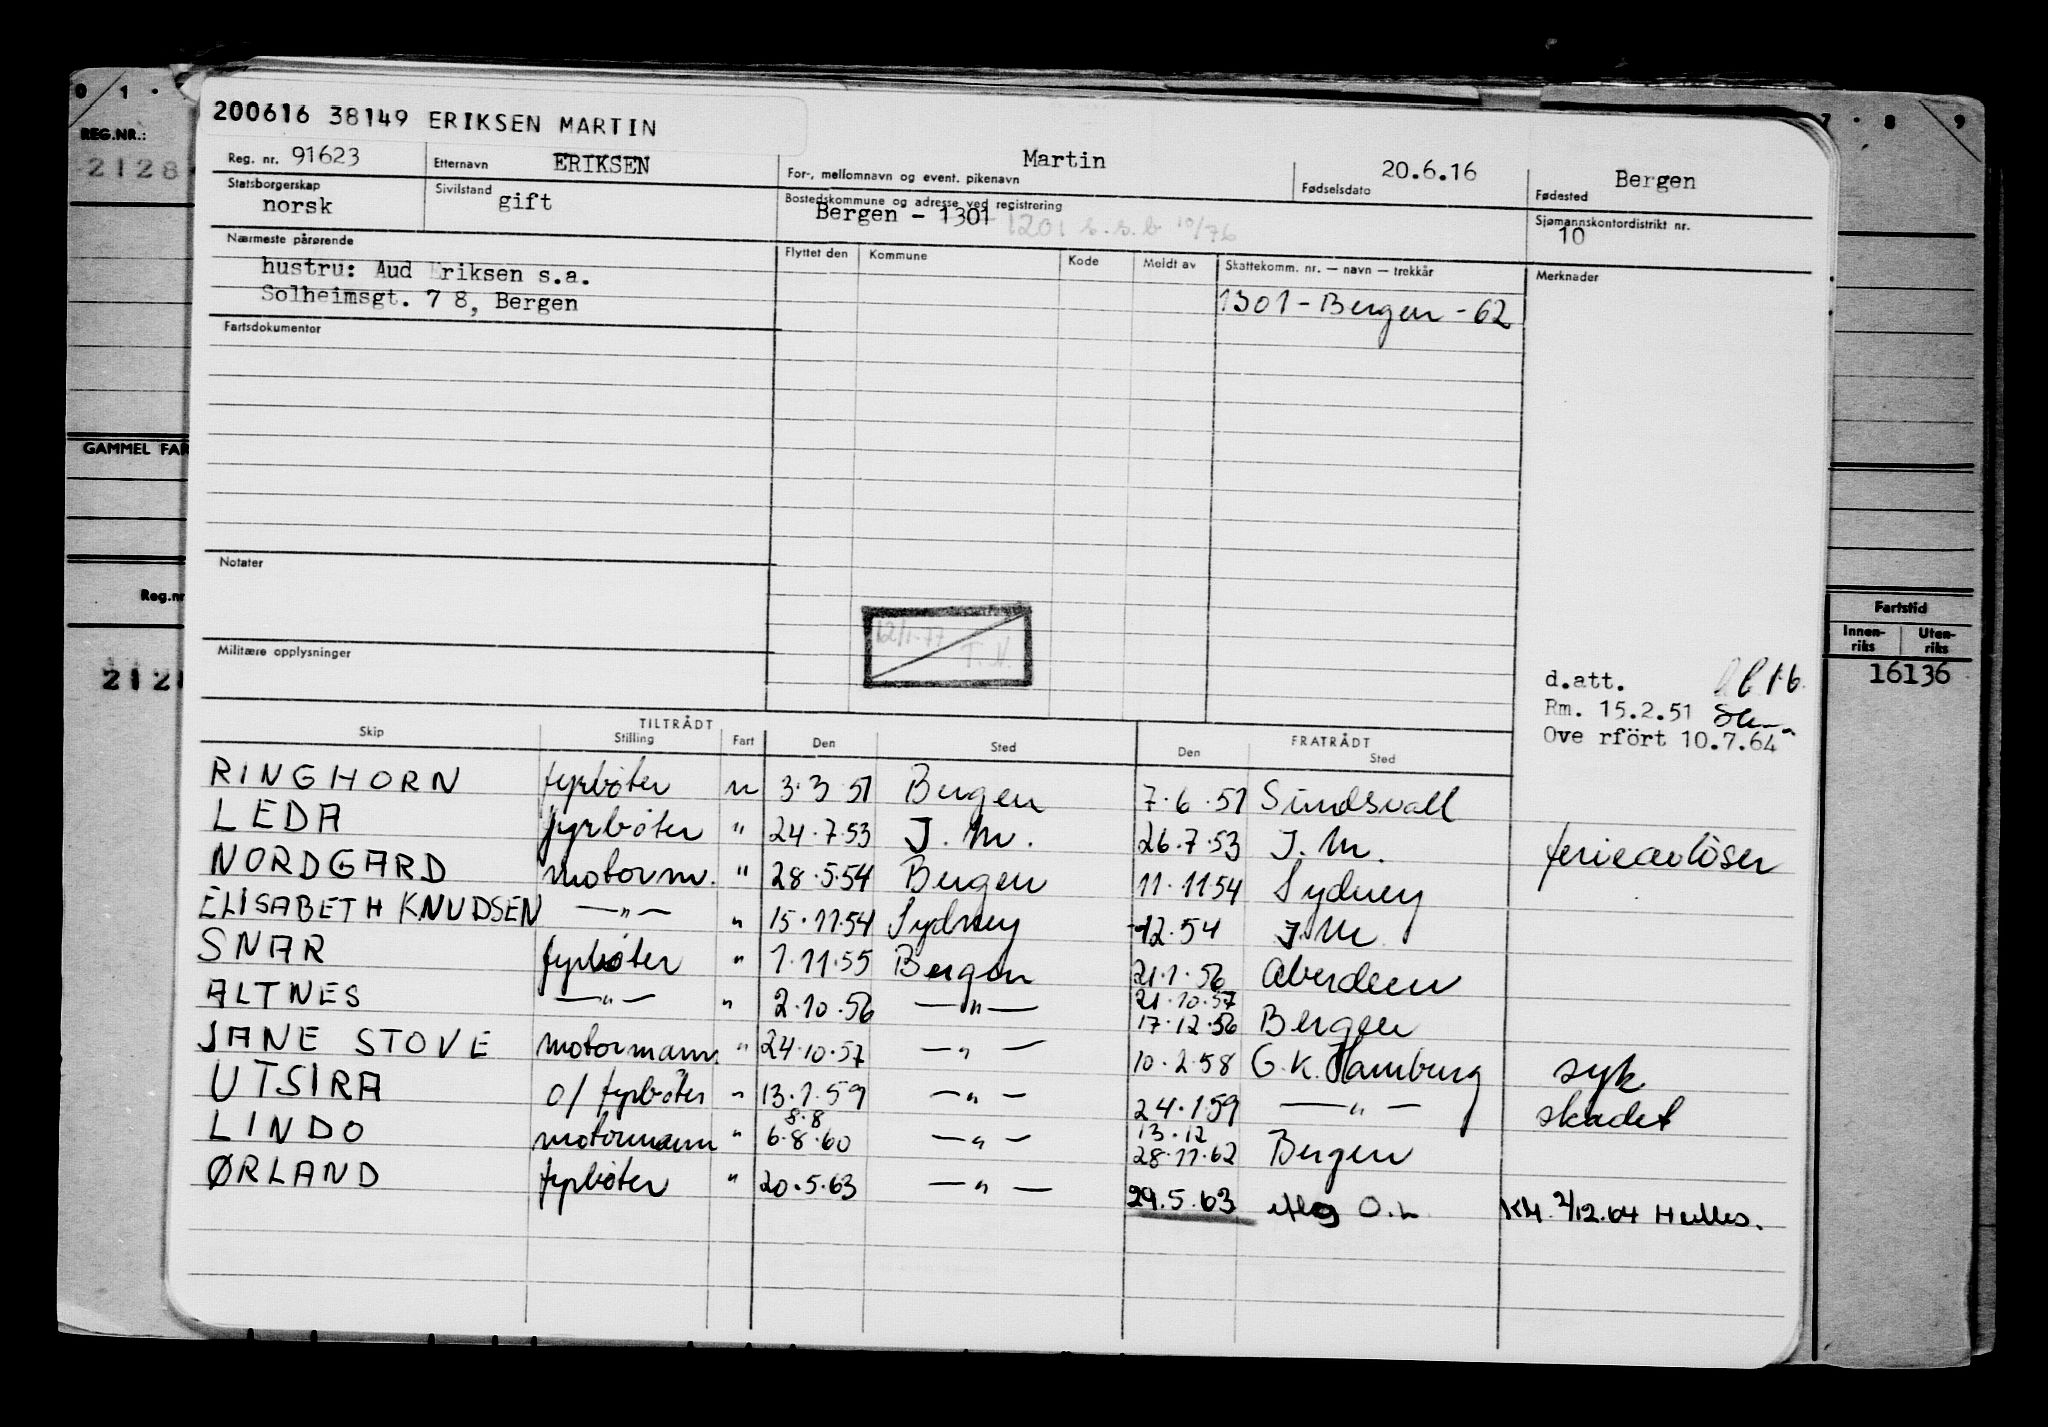 200616 38149 ERIKSEN MARTIN
Reg. nr. 91623 Etternavn ERIKSEN For-, mellomnavn og event. pikenavn Martin Fødselsdato 20.6.16 Fødested Bergen
Statsborgerskap norsk Sivilstand gift Bostedskommune og adresse ved registrering Bergen - 1301 1201 s.s.b 10/76 Sjømannskontordistrikt nr. 10
Nærmeste pårørende Flyttet den Kommune Kode Meldt av Skattekomm. nr. — navn — trekkår Merknader
hustru: Aud Eriksen s.a.
Solheimsgt. 7 8, Bergen 1301 - Bergen - 62
Fartsdokumenter
Notater
12/1-77 T.N.
Militære opplysninger
d.att.
Rm. 15.2.51
Ove rfört 10.7.64
Skip TILTRÅDT Stilling Fart Den Sted FRATRÅDT Den Sted
RINGHORN fyrbøter u 3.3 51 Bergen 7.6.51 Sundsvall
LEDA fyrbøter " 24.7.53 J.M. 26.7.53 J.M. ferieavlöser
NORDGARD motorm. " 28.5.54 Bergen 11.11 54 Sydney
ELISABETH KNUDSEN —"— " 15.11.54 Sydney -12.54 J.M
SNAR fyrbøter " 1.11.55 Bergen 21.1.56 Aberdeen
ALTNES —"— " 2.10.56 —"— 17.12.56 Bergen
JANE STOVE motormann " 24.10.57 —"— 21.10.57 10.2.58 G.K. Hamburg syk
UTSIRA o/ fyrbøter " 13.1.59 —"— 24.1.59 —"— skadet
LINDO motormann " 8.8 6.8.60 —"— 13.12 28.11.62 Bergen
ØRLAND fyrbøter " 20.5.63 —"— 29.5.63 O.L. 2/12.64
0 1 .
REG.NR.:
2128
GAMMEL FAR
Reg.nr
212
7 . 8 9
Fartstid
Innen-riks Uten-riks
16136